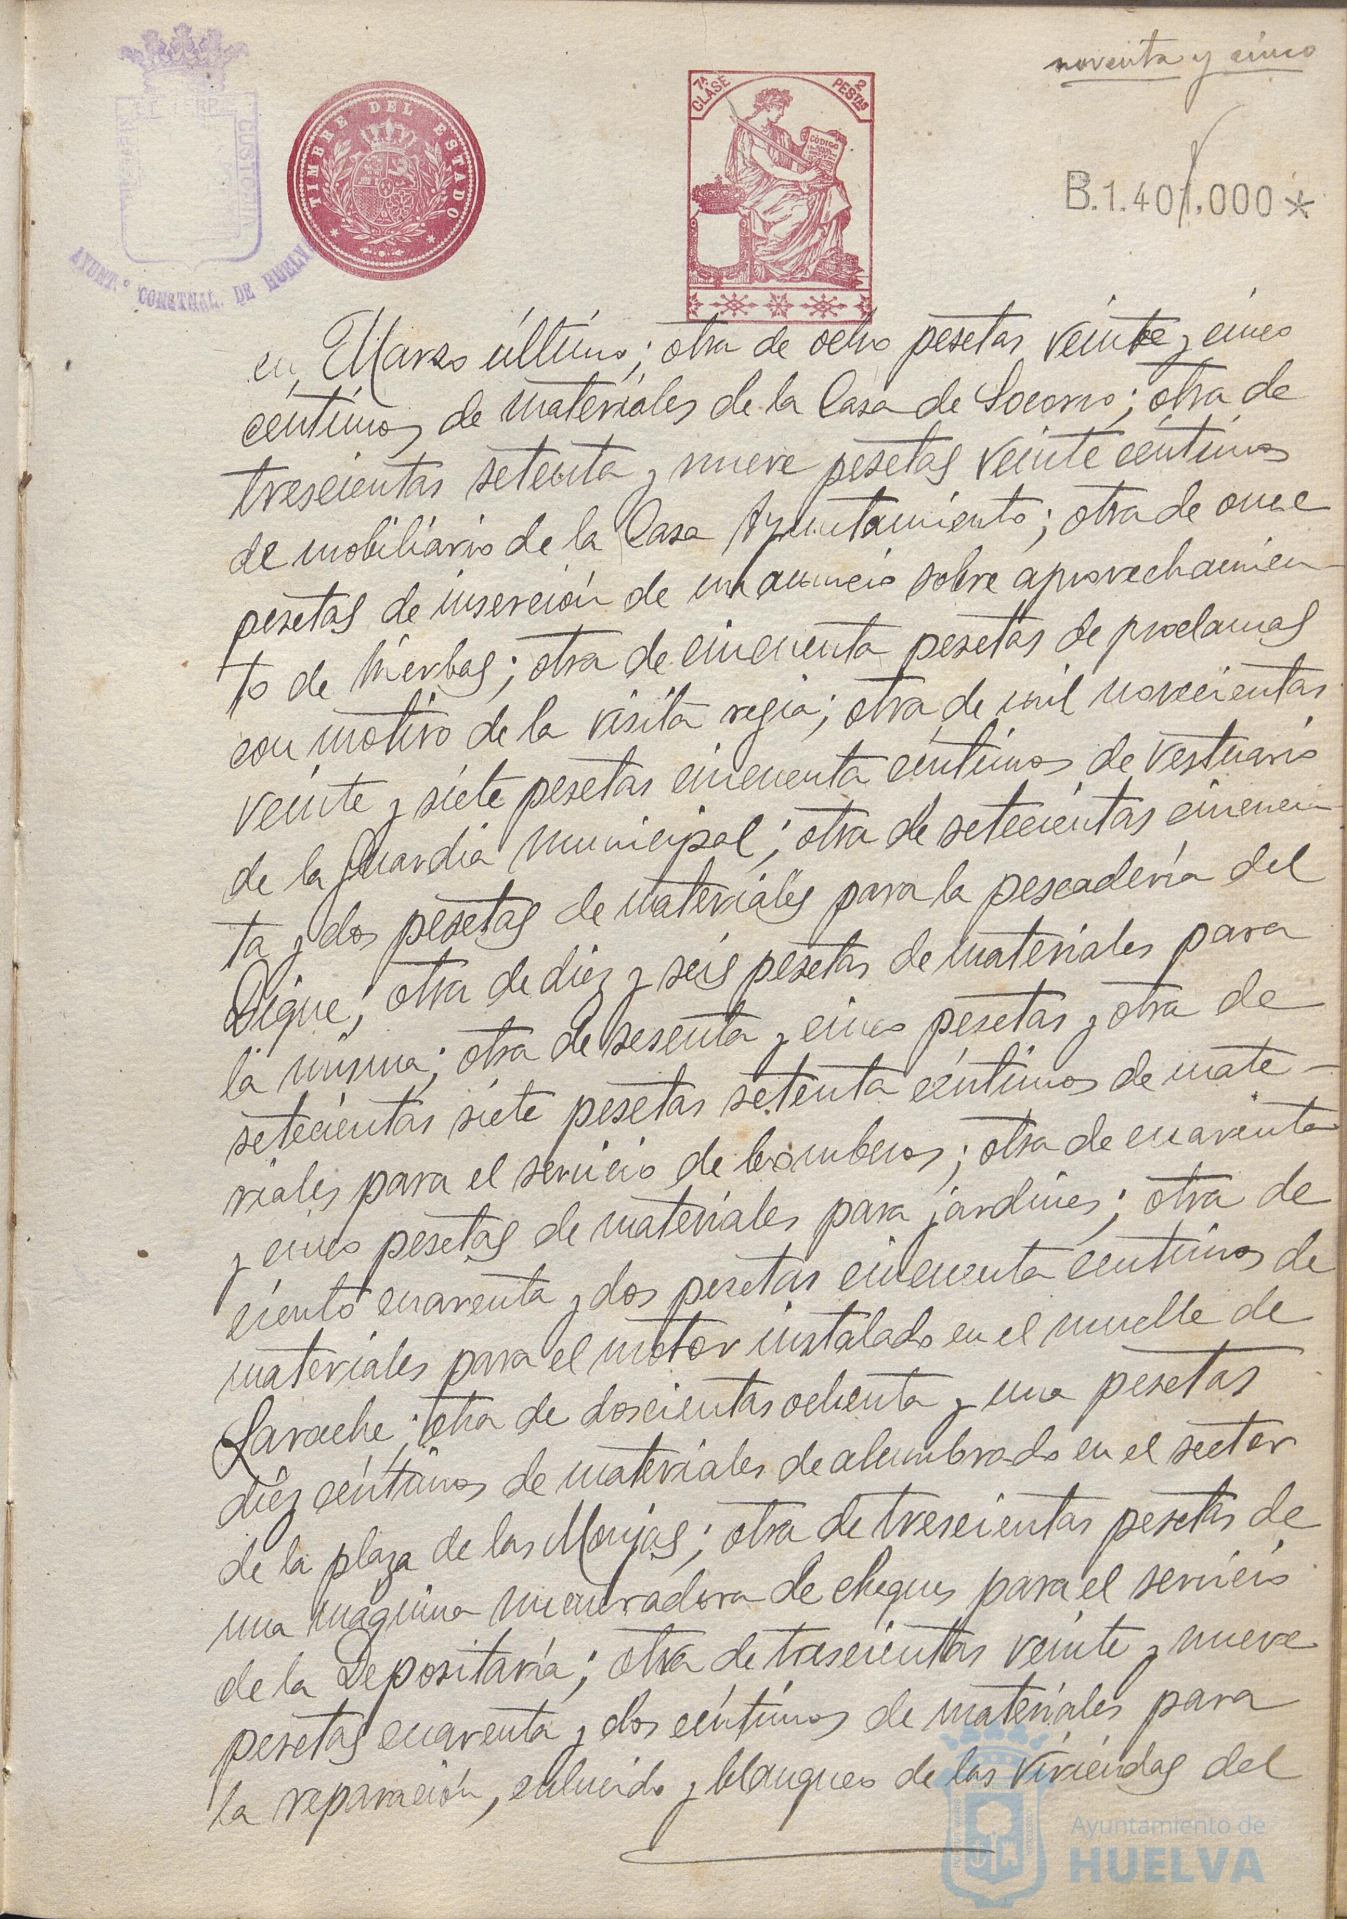 noventa y cinco
TIMBRE DEL ESTADO
7ª CLASE
2 PESTAS
CODIGO
B.1.401.000*
CUSTODIA
AYUNTº CONSTNAL. DE HUELVA
en Marzo último; otra de ocho pesetas veinte y cinco
céntimos de materiales de la Casa de Socorro; otra de
trescientas setenta y nueve pesetas veinte céntimos
de mobiliario de la Casa Ayuntamiento; otra de once
pesetas de inserción de un anuncio sobre aprovechamien-
to de hierbas; otra de cincuenta pesetas de proclamas
con motivo de la visita regia; otra de mil novecientas
veinte y siete pesetas cincuenta céntimos de vestuario
de la Guardia Municipal; otra de setecientas cincuen-
ta y dos pesetas de materiales para la pescadería del
Dique; otra de diez y seis pesetas de materiales para
la misma; otra de sesenta y cinco pesetas y otra de
setecientas siete pesetas setenta céntimos de mate-
riales para el servicio de bomberos; otra de cuarenta
y cinco pesetas de materiales para jardines; otra de
ciento cuarenta y dos pesetas cincuenta centimos de
materiales para el motor instalado en el muelle de
Larache; otra de doscientas ochenta y una pesetas
diez céntimos de materiales de alumbrado en el sector
de la plaza de las Monjas; otra de trescientas pesetas de
una maquina numeradora de cheques para el servicio
de la Depositaría; otra de trescientas veinte y nueve
pesetas cuarenta y dos céntimos de materiales para
la reparación, enlucido y blanqueo de las viviendas del
Ayuntamiento de
HUELVA